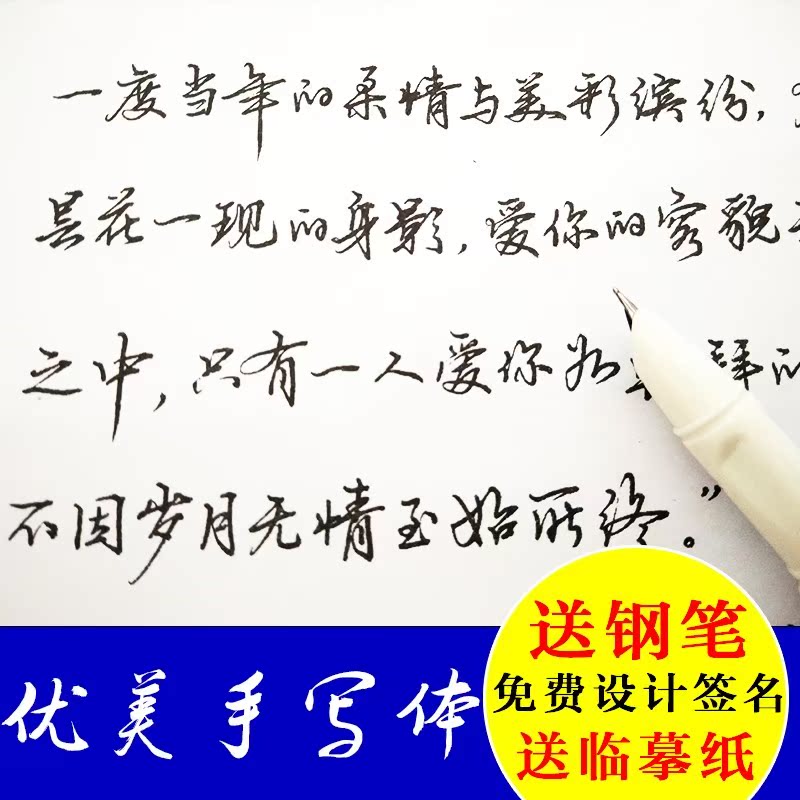 一度当年的柔情与美形缤纷，
昙花一现的身影，爱你的容貌
之中，只有一人爱你如 拜的
不因岁月无情至始所终。”
优美手写体
送钢笔
免费设计签名
送临摹纸